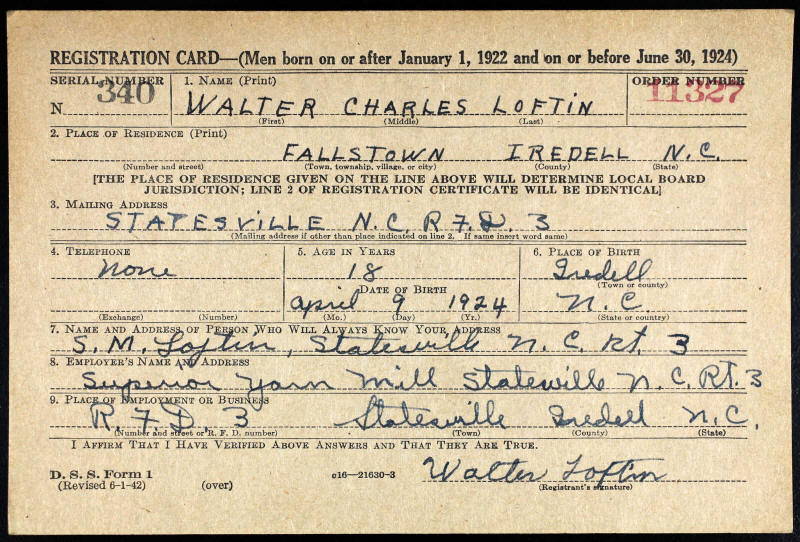 REGISTRATION CARD—(Men born on or after January 1, 1922 and on or before June 30, 1924)
SERIAL NUMBER 1. NAME (Print) ORDER NUMBER
N 340 WALTER CHARLES LOFTIN 11327
(First) (Middle) (Last)
2. PLACE OF RESIDENCE (Print)
FALLSTOWN IREDELL N.C.
(Number and street) (Town, township, village, or city) (County) (State)
[THE PLACE OF RESIDENCE GIVEN ON THE LINE ABOVE WILL DETERMINE LOCAL BOARD
JURISDICTION; LINE 2 OF REGISTRATION CERTIFICATE WILL BE IDENTICAL]
3. MAILING ADDRESS
STATESVILLE N.C. R.F.D. 3
(Mailing address if other than place indicated on line 2. If same insert word same)
4. TELEPHONE 5. AGE IN YEARS 6. PLACE OF BIRTH
None 18 Iredell
(Town or county)
DATE OF BIRTH
April 9 1924 N.C.
(Exchange) (Number) (Mo.) (Day) (Yr.) (State or country)
7. NAME AND ADDRESS OF PERSON WHO WILL ALWAYS KNOW YOUR ADDRESS
S. M. Loftin, Statesville N.C. Rt. 3
8. EMPLOYER'S NAME AND ADDRESS
Superior Yarn Mill Statesville N.C. Rt. 3
9. PLACE OF EMPLOYMENT OR BUSINESS
R.F.D. 3 Statesville Iredell N.C.
(Number and street or R. F. D. number) (Town) (County) (State)
I AFFIRM THAT I HAVE VERIFIED ABOVE ANSWERS AND THAT THEY ARE TRUE.
D. S. S. Form 1
(Revised 6-1-42) (over) c16—21630-3 Walter Loftin
(Registrant's signature)